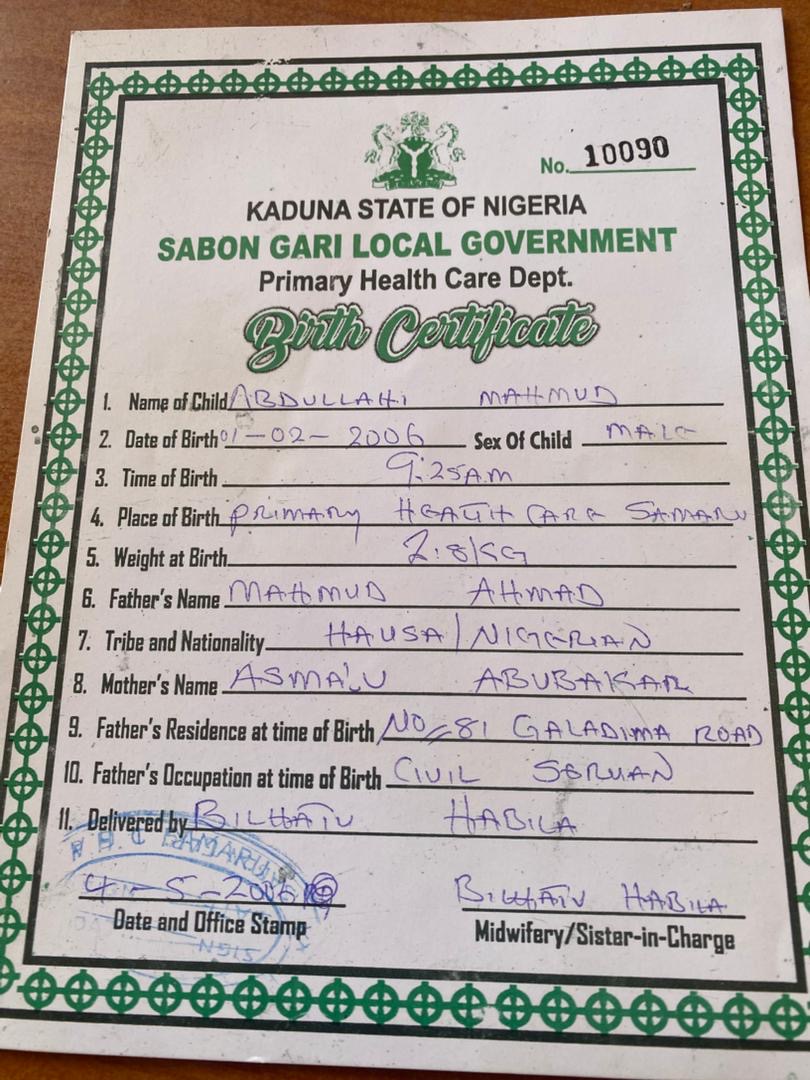 No. 10090
KADUNA STATE OF NIGERIA
SABON GARI LOCAL GOVERNMENT
Primary Health Care Dept.
Birth Certificate
1. Name of Child ABDULLAHI MAHMUD
2. Date of Birth 01-02-2006 Sex Of Child MALE
3. Time of Birth 9:25AM
4. Place of Birth PRIMARY HEALTH CARE SAMARU
5. Weight at Birth 2.8KG
6. Father's Name MAHMUD AHMAD
7. Tribe and Nationality HAUSA/NIGERIAN
8. Mother's Name ASMA'U ABUBAKAR
9. Father's Residence at time of Birth NO=81 GALADIMA ROAD
10. Father's Occupation at time of Birth CIVIL SERVAN
11. Delivered by BILHATU HABILA
SAMARU
4-5-2006 BILHATU HABILA
SIGN
Date and Office Stamp Midwifery/Sister-in-Charge